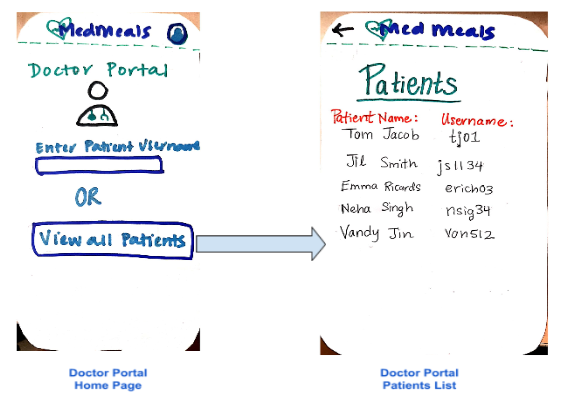 MedMeals
Doctor Portal
Enter Patient
OR
View all Patients
Doctor Portal
Home Page
Med Meals
Patients
Patient Name: Username:
Tom Jacob tj01
Jil Smith
Emma Ricards erich03
Neha Singh nsig34
Vandy Jin van512
Doctor Portal
Patients List